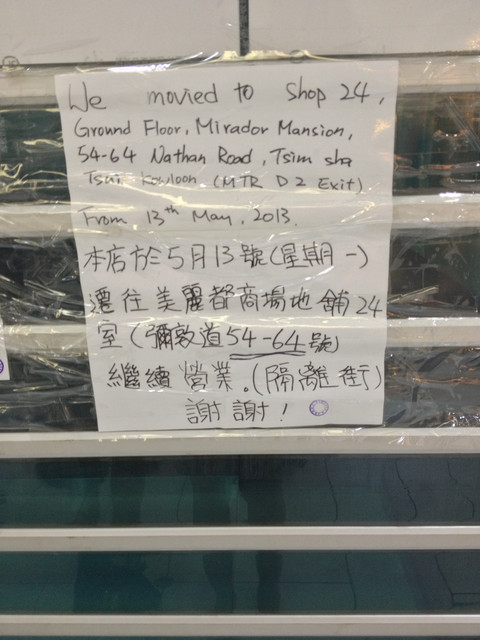 We movied to shop 24,
Ground Floor, Mirador Mansion,
54-64 Nathan Road, Tsim sha
Tsui Kowloon (MTR D2 Exit)
From 13th May, 2013.
本店於5月13號(星期一)
遷往美麗都商場地舖24
室(彌敦道54-64號)
繼續營業。(隔離街)
謝謝!